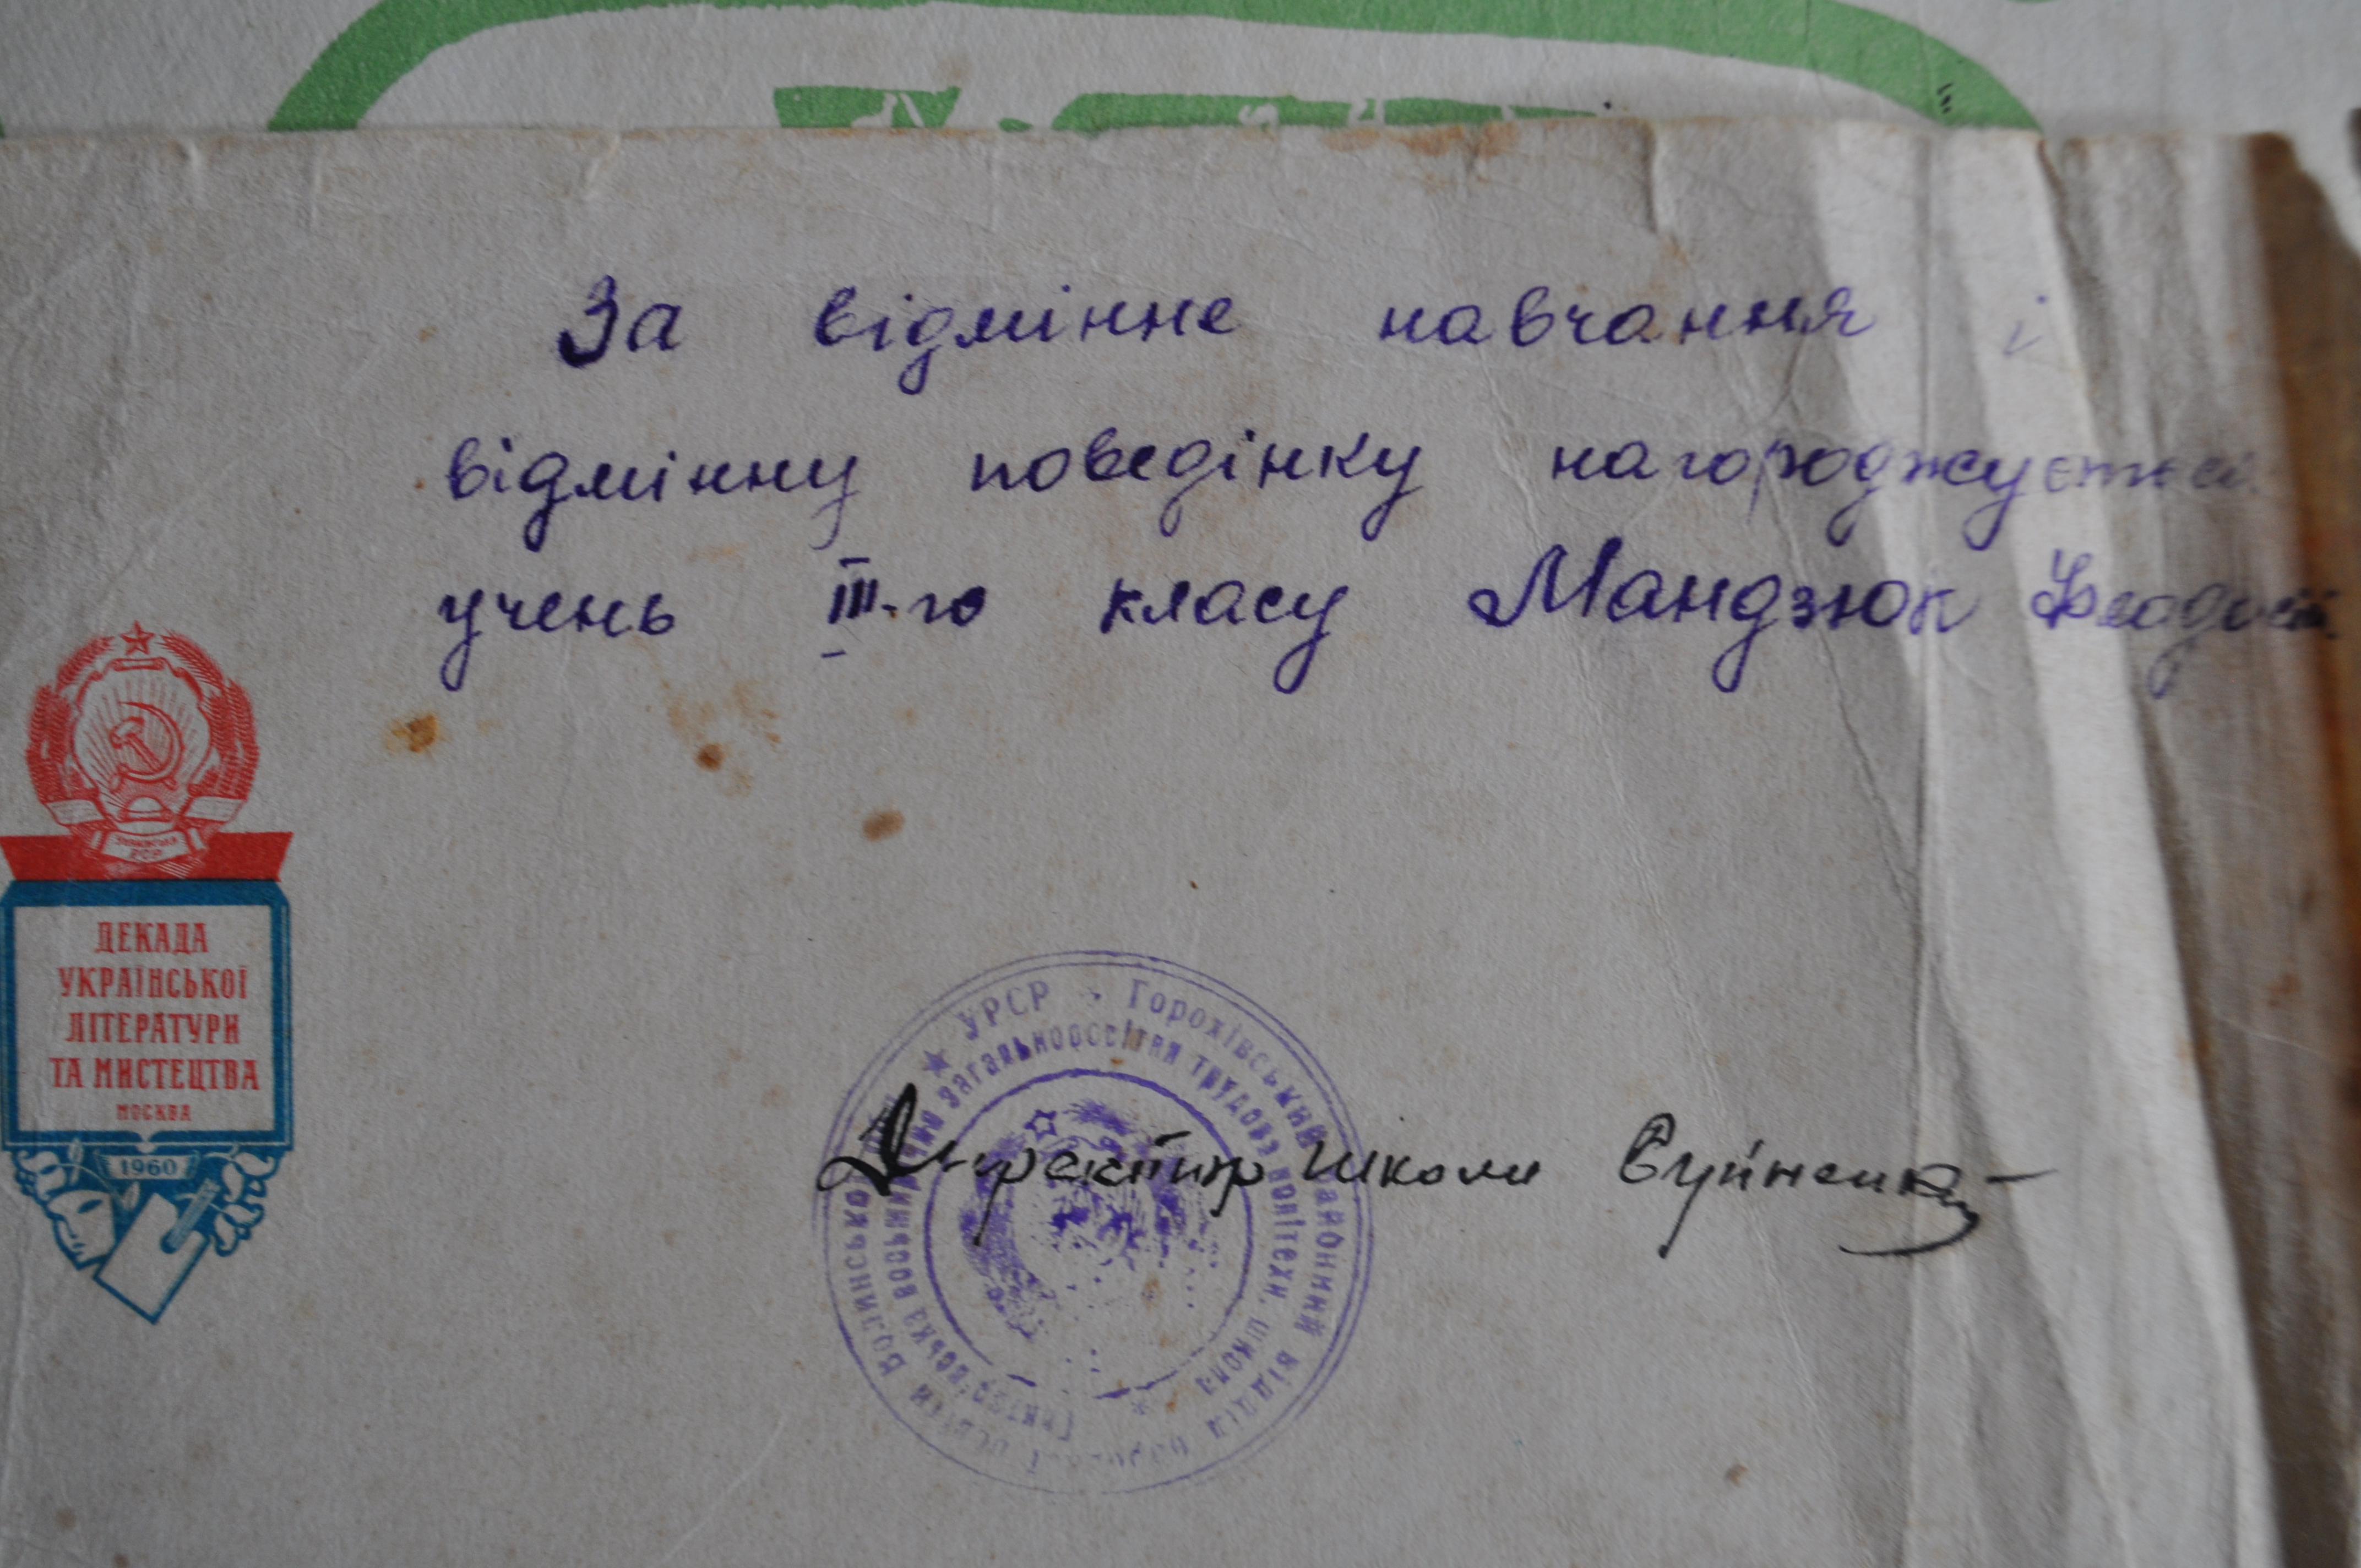 За відмінне навчання і
відмінну поведінку нагороджується
учень III-го класу Мандзюк Феодосій
УКРАЇНСЬКА
РСР
ДЕКАДА
УКРАЇНСЬКОЇ
ЛІТЕРАТУРИ
ТА МИСТЕЦТВА
МОСКВА
1960
УРСР Горохівський районний відділ народної освіти Волинської
восьмирічна загальноосвітня трудова політехн. школа
Директор школи